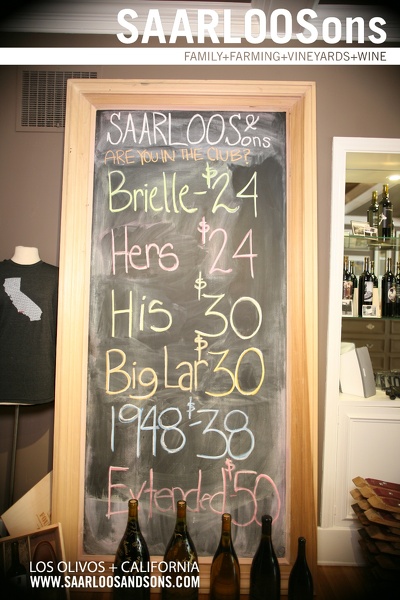 SAARLOOSons
FAMILY+FARMING+VINEYARDS+WINE
SAARLOOS&ons
ARE YOU IN THE CLUB?
Brielle-$24
Hers $24
His $30
Big Lar $30
1948-$38
Extended $50
LOS OLIVOS + CALIFORNIA
WWW.SAARLOOSANDSONS.COM